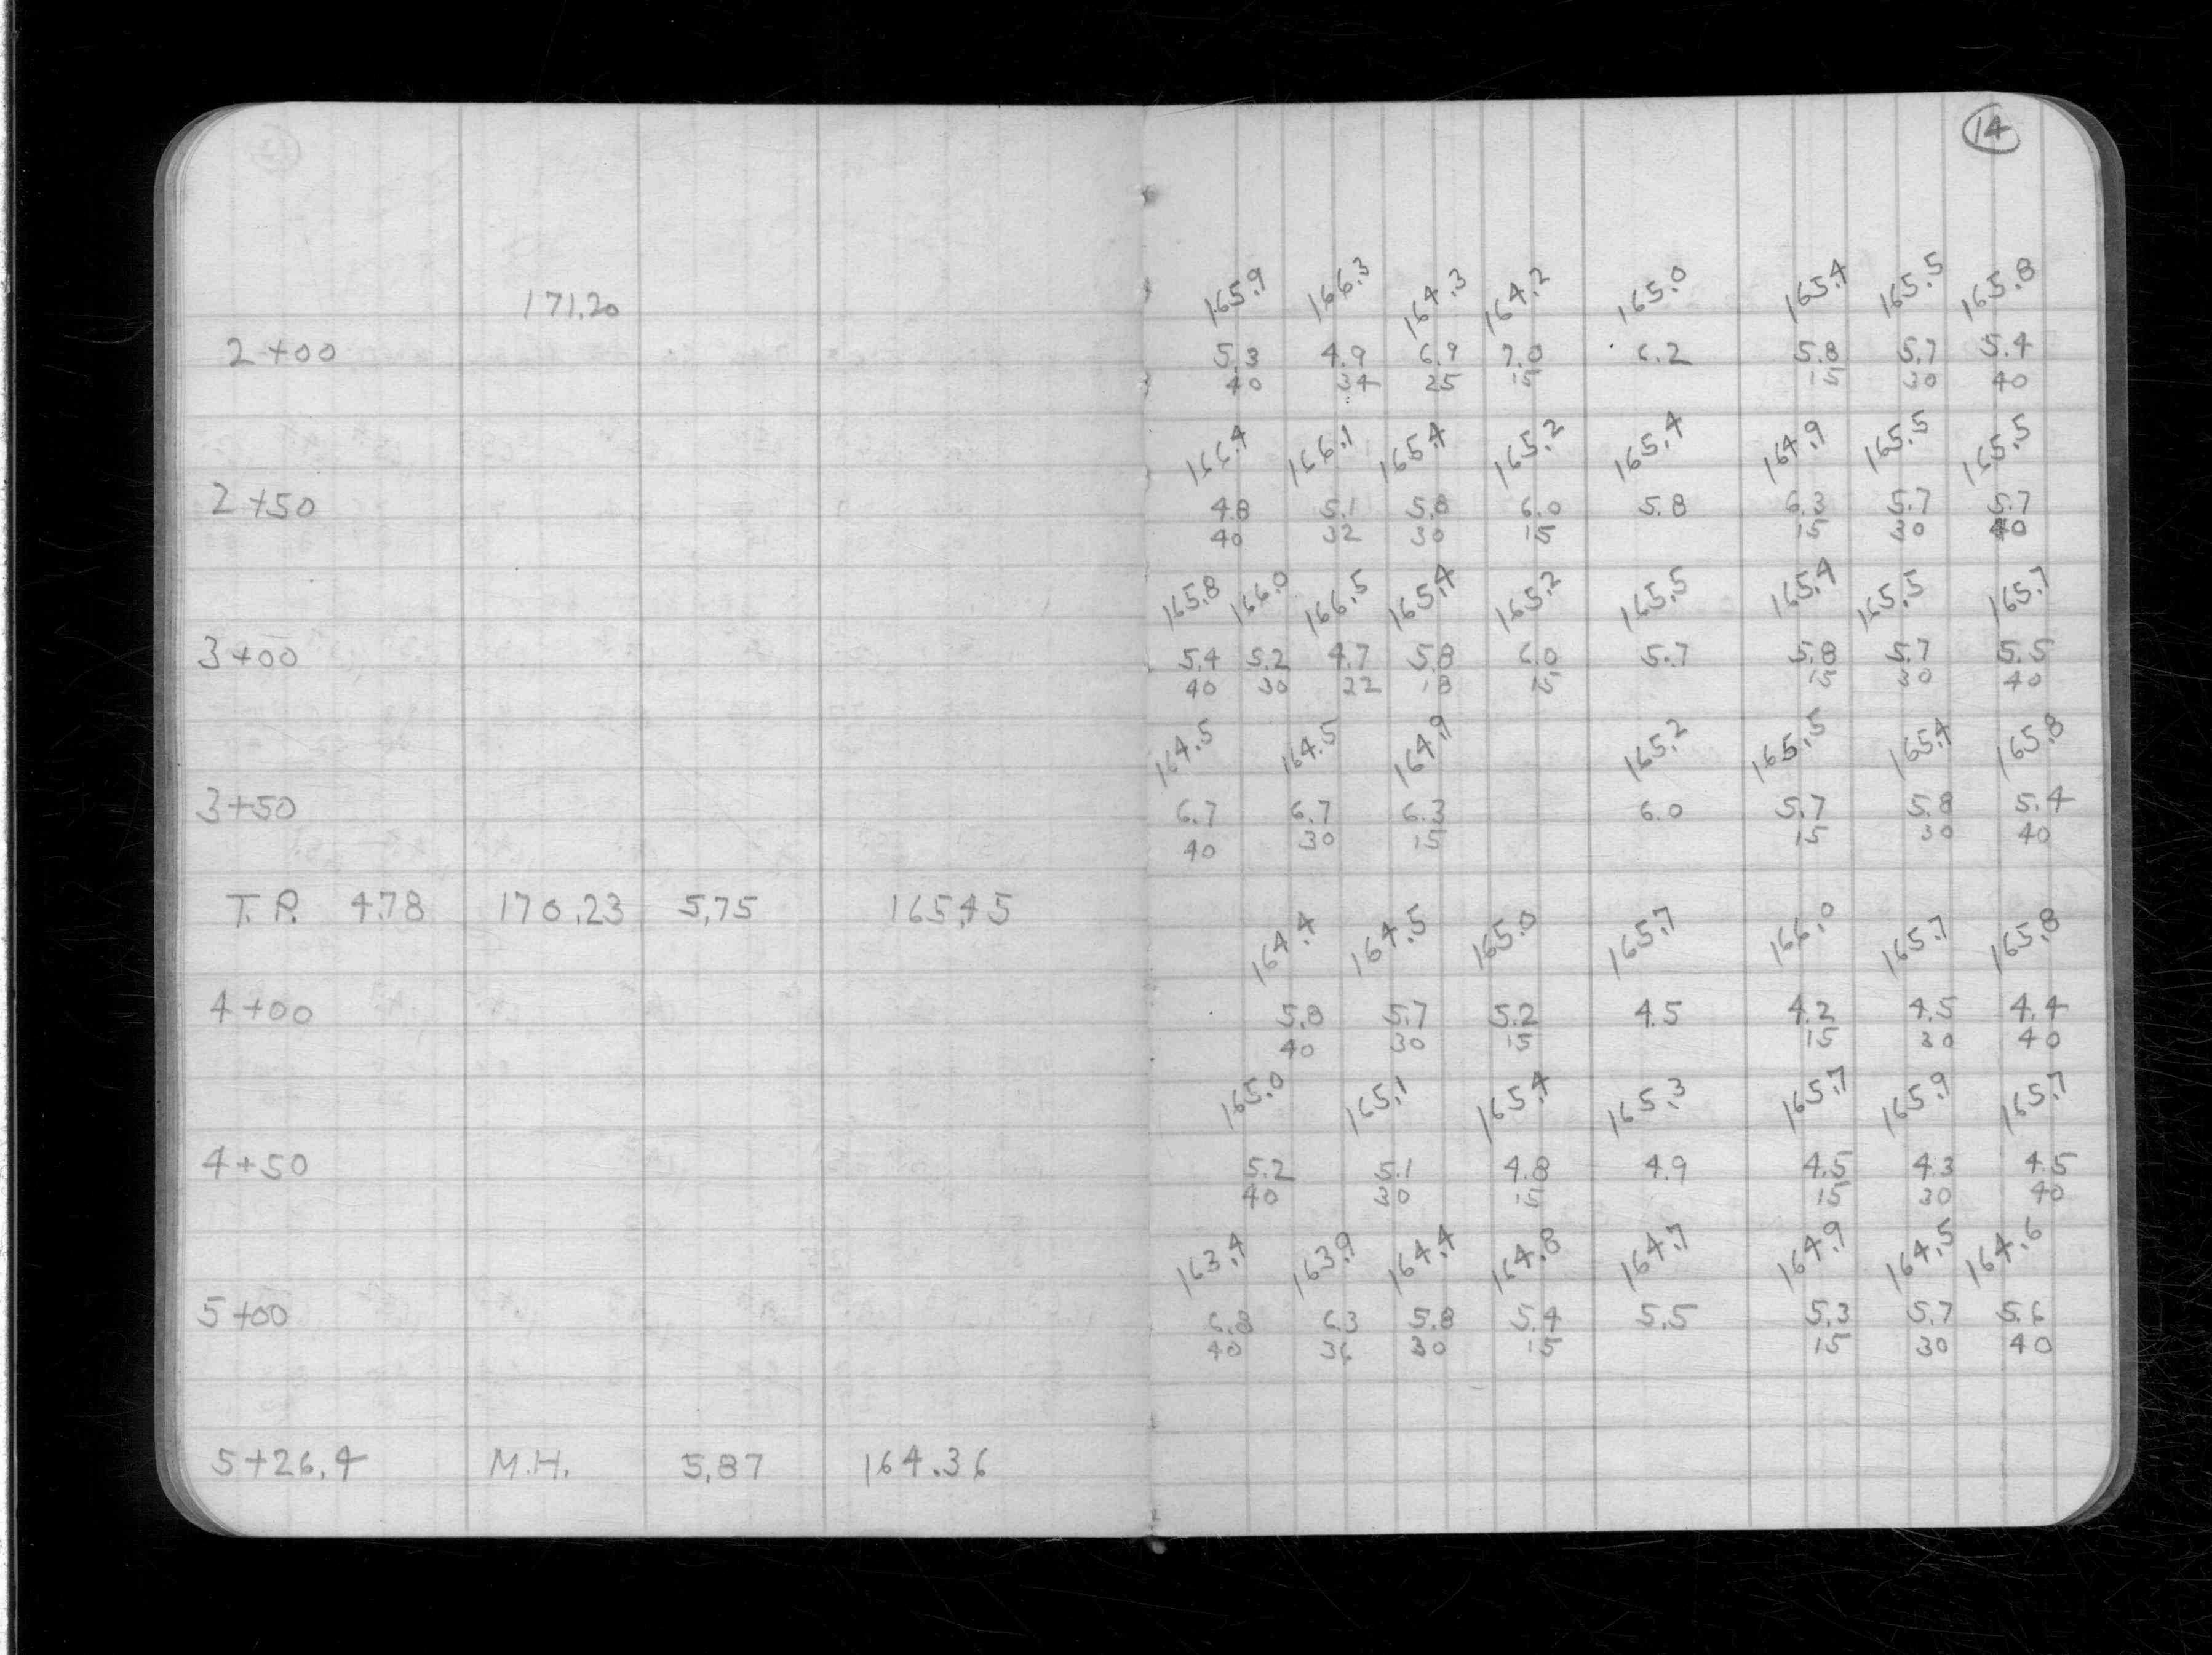 14
171.20
165.9 166.3 164.3 164.2 165.0 165.4 165.5 165.8
2+00 5.3 4.9 6.9 7.0 6.2 5.8 5.7 5.4
40 34 25 15 15 30 40
166.4 166.1 165.4 165.2 165.4 164.9 165.5 165.5
2+50 4.8 5.1 5.8 6.0 5.8 6.3 5.7 5.7
40 32 30 15 15 30 40
165.8 166.0 166.5 165.4 165.2 165.5 165.4 165.5 165.7
3+00 5.4 5.2 4.7 5.8 6.0 5.7 5.8 5.7 5.5
40 30 22 18 15 15 30 40
164.5 164.5 164.9 165.2 165.5 165.4 165.8
3+50 6.7 6.7 6.3 6.0 5.7 5.8 5.4
40 30 15 15 30 40
T.P. 4.78 170.23 5.75 165.45
164.4 164.5 165.0 165.7 166.0 165.7 165.8
4+00 5.8 5.7 5.2 4.5 4.2 4.5 4.4
40 30 15 15 30 40
165.0 165.1 165.4 165.3 165.7 165.9 165.7
4+50 5.2 5.1 4.8 4.9 4.5 4.3 4.5
40 30 15 15 30 40
163.4 163.9 164.4 164.8 164.7 164.9 164.5 164.6
5+00 6.8 6.3 5.8 5.4 5.5 5.3 5.7 5.6
40 36 30 15 15 30 40
5+26.4 M.H. 5.87 164.36